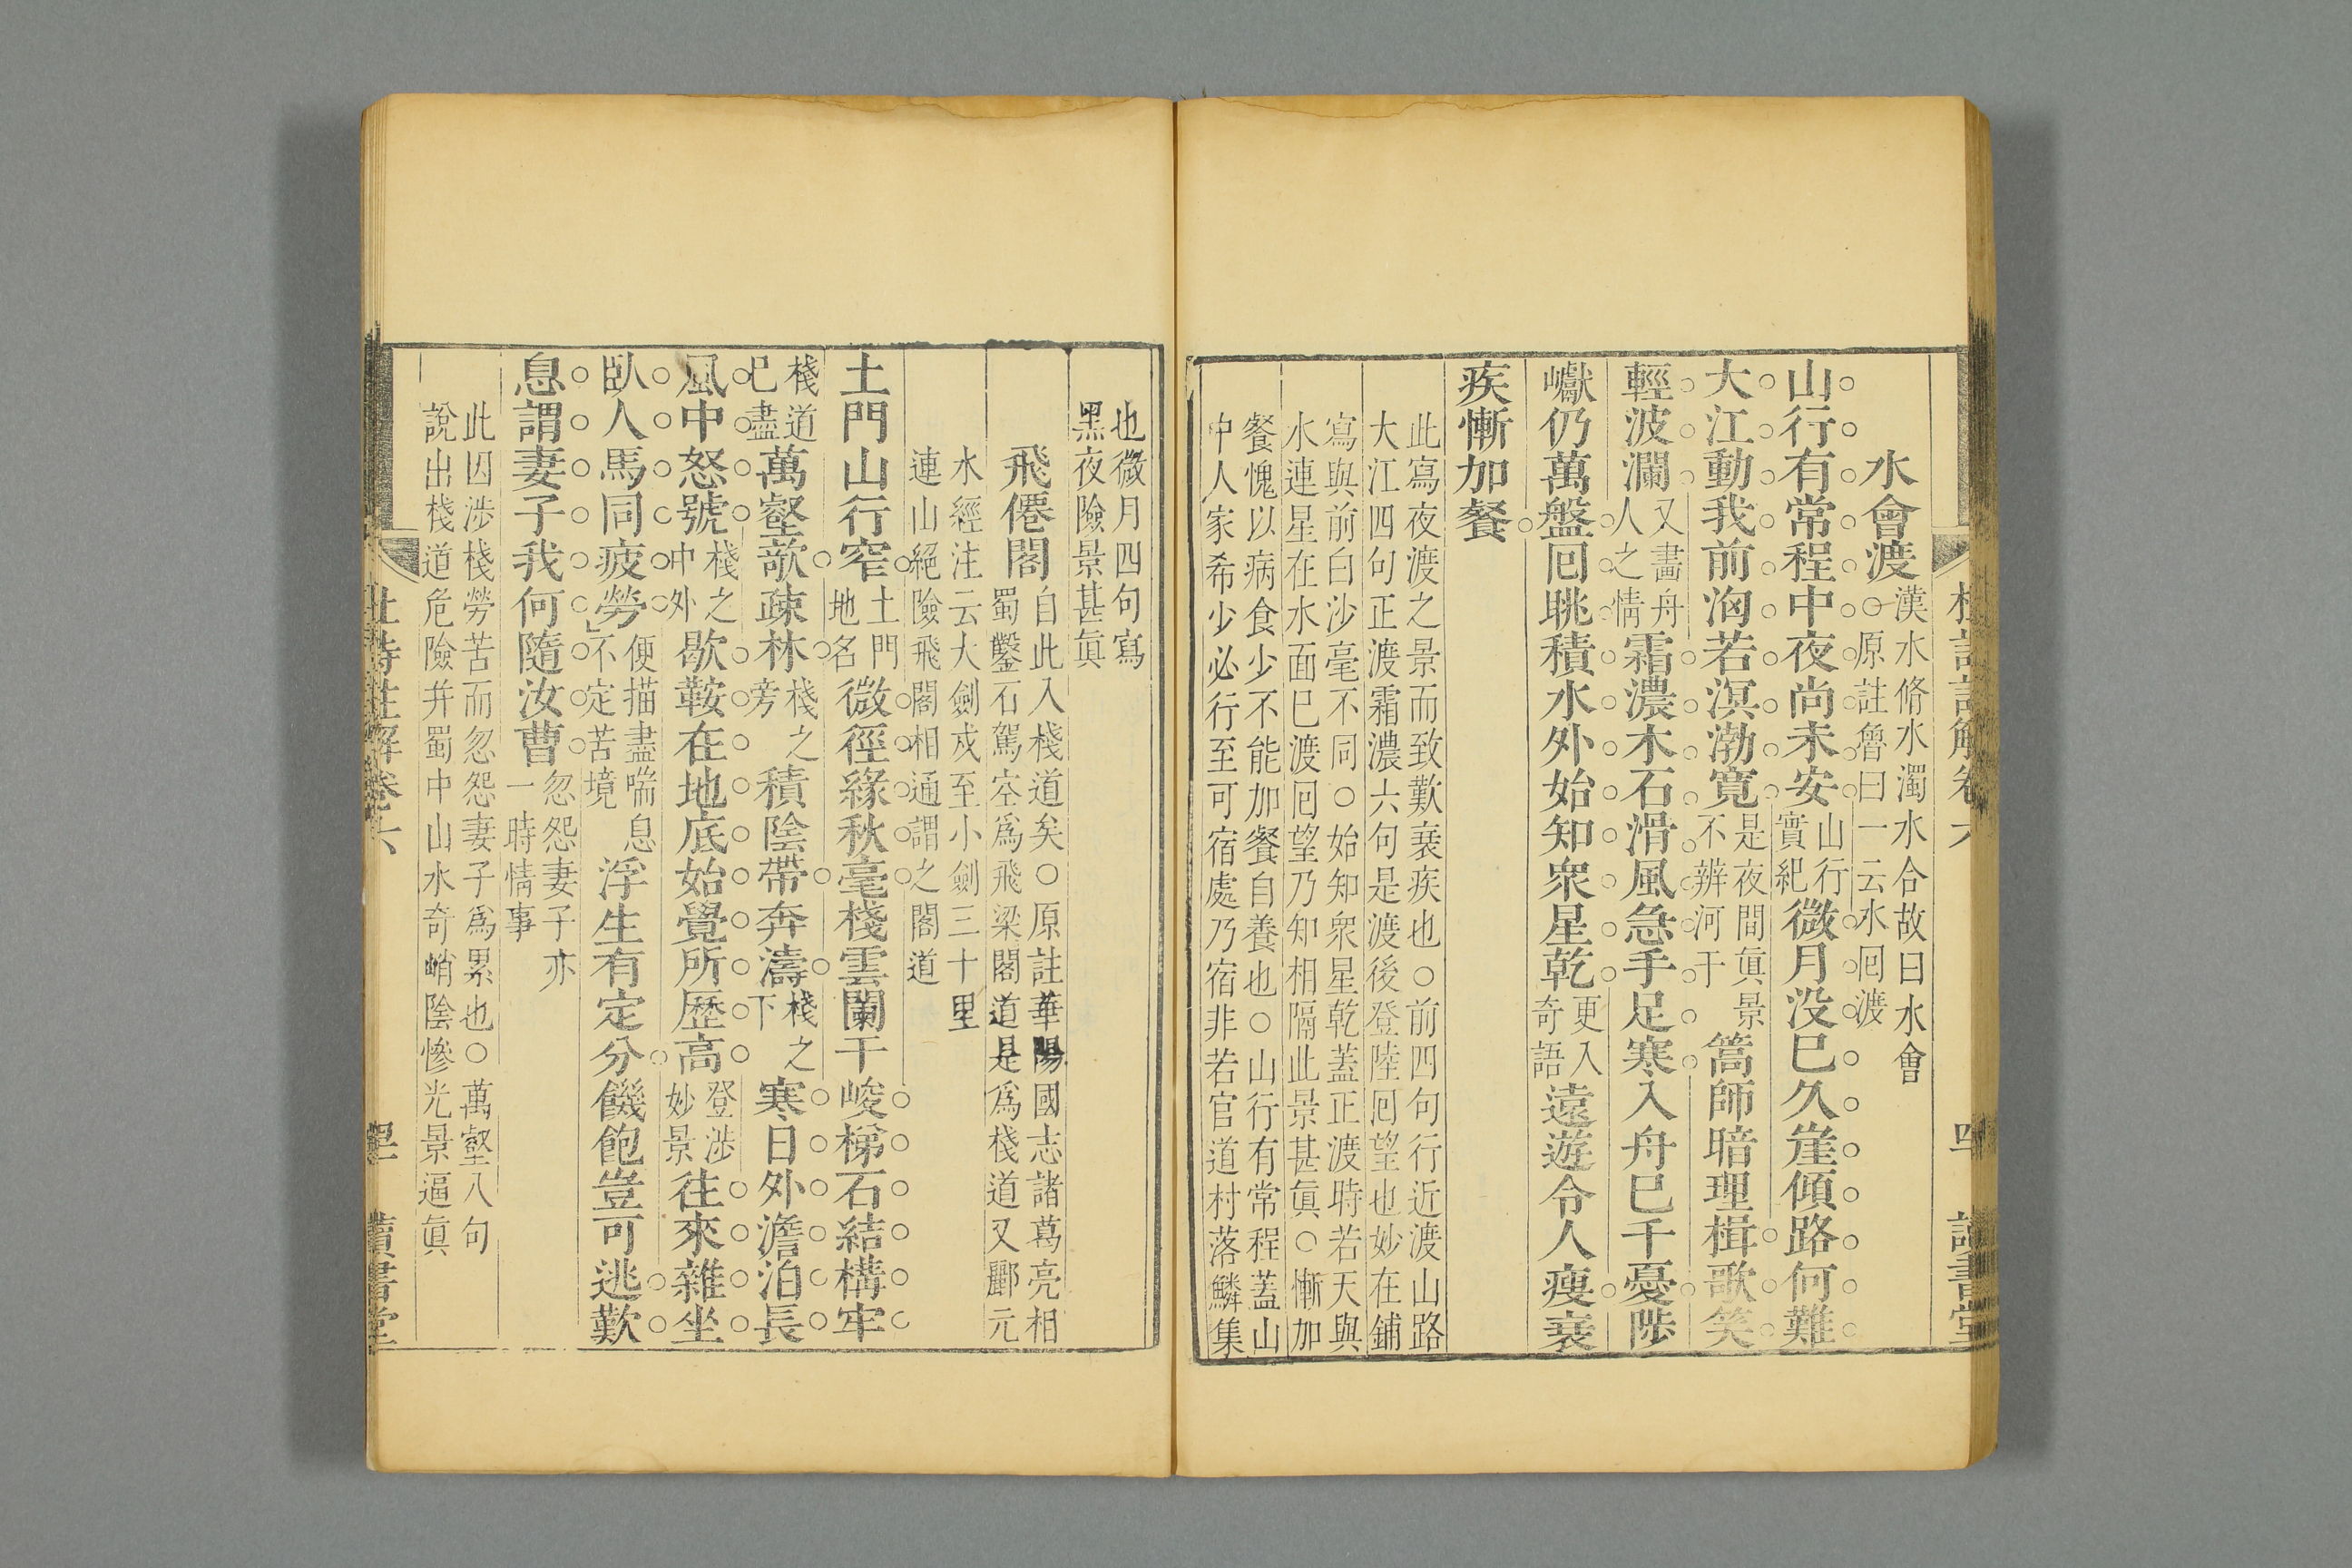 水會渡漢水脩水濁水合故曰水會
○原註魯曰一云水囘渡
山行有常程中夜尚未安山行
實紀微月没巳久崖傾路何難
大江動我前洶若溟渤寛是夜間眞景
不辨河于篙師暗理楫歌笑
輕波瀾又畵舟
人之情霜濃木石滑風急手足寒入舟巳千憂陟
巘仍萬盤囘眺積水外始知衆星乾更入
奇語遠遊令人瘦衰
疾慚加餐
此寫夜渡之景而致歎衰疾也○前四句行近渡山路
大江四句正渡霜濃六句是渡後登陸囘望也妙在鋪
寫與前白沙毫不同○始知衆星乾蓋正渡時若天與
水連星在水面巳渡囘望乃知相隔此景甚眞○慚加
餐愧以病食少不能加餐自養也○山行有常程蓋山
中人家希少必行至可宿處乃宿非若官道村落鱗集
也微月四句寫
黑夜險景甚眞
飛僊閣自此入棧道矣○原註華陽國志諸葛亮相
蜀鑿石駕空爲飛梁閣道是爲棧道又酈元
水經注云大劍戍至小劍三十里
連山絕險飛閣相通謂之閣道
土門山行窄土門
地名微徑緣秋毫棧雲闌干峻梯石結構牢
棧道
巳盡萬壑欹疎林棧之
旁積陰帶奔濤棧之
下寒日外澹泊長
風中怒號棧之
中外歇鞍在地底始覺所歷高登渉
妙景往來雜坐
臥人馬同疲勞便描盡喘息
不定苦境浮生有定分饑飽豈可逃歎
息謂妻子我何隨汝曹忽怨妻子亦
一時情事
此因渉棧勞苦而忽怨妻子爲累也○萬壑八句
說出棧道危險并蜀中山水奇峭陰慘光景逼眞
杜詩註解卷六
讀書堂